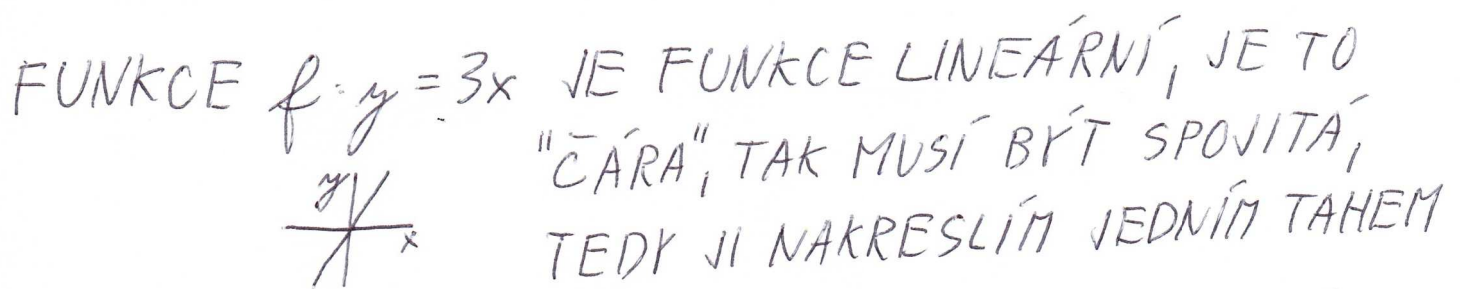 FUNKCE f: y = 3x JE FUNKCE LINEÁRNÍ, JE TO
"ČÁRA", TAK MUSÍ BÝT SPOJITÁ,
TEDY JI NAKRESLÍM JEDNÍM TAHEM
y
x